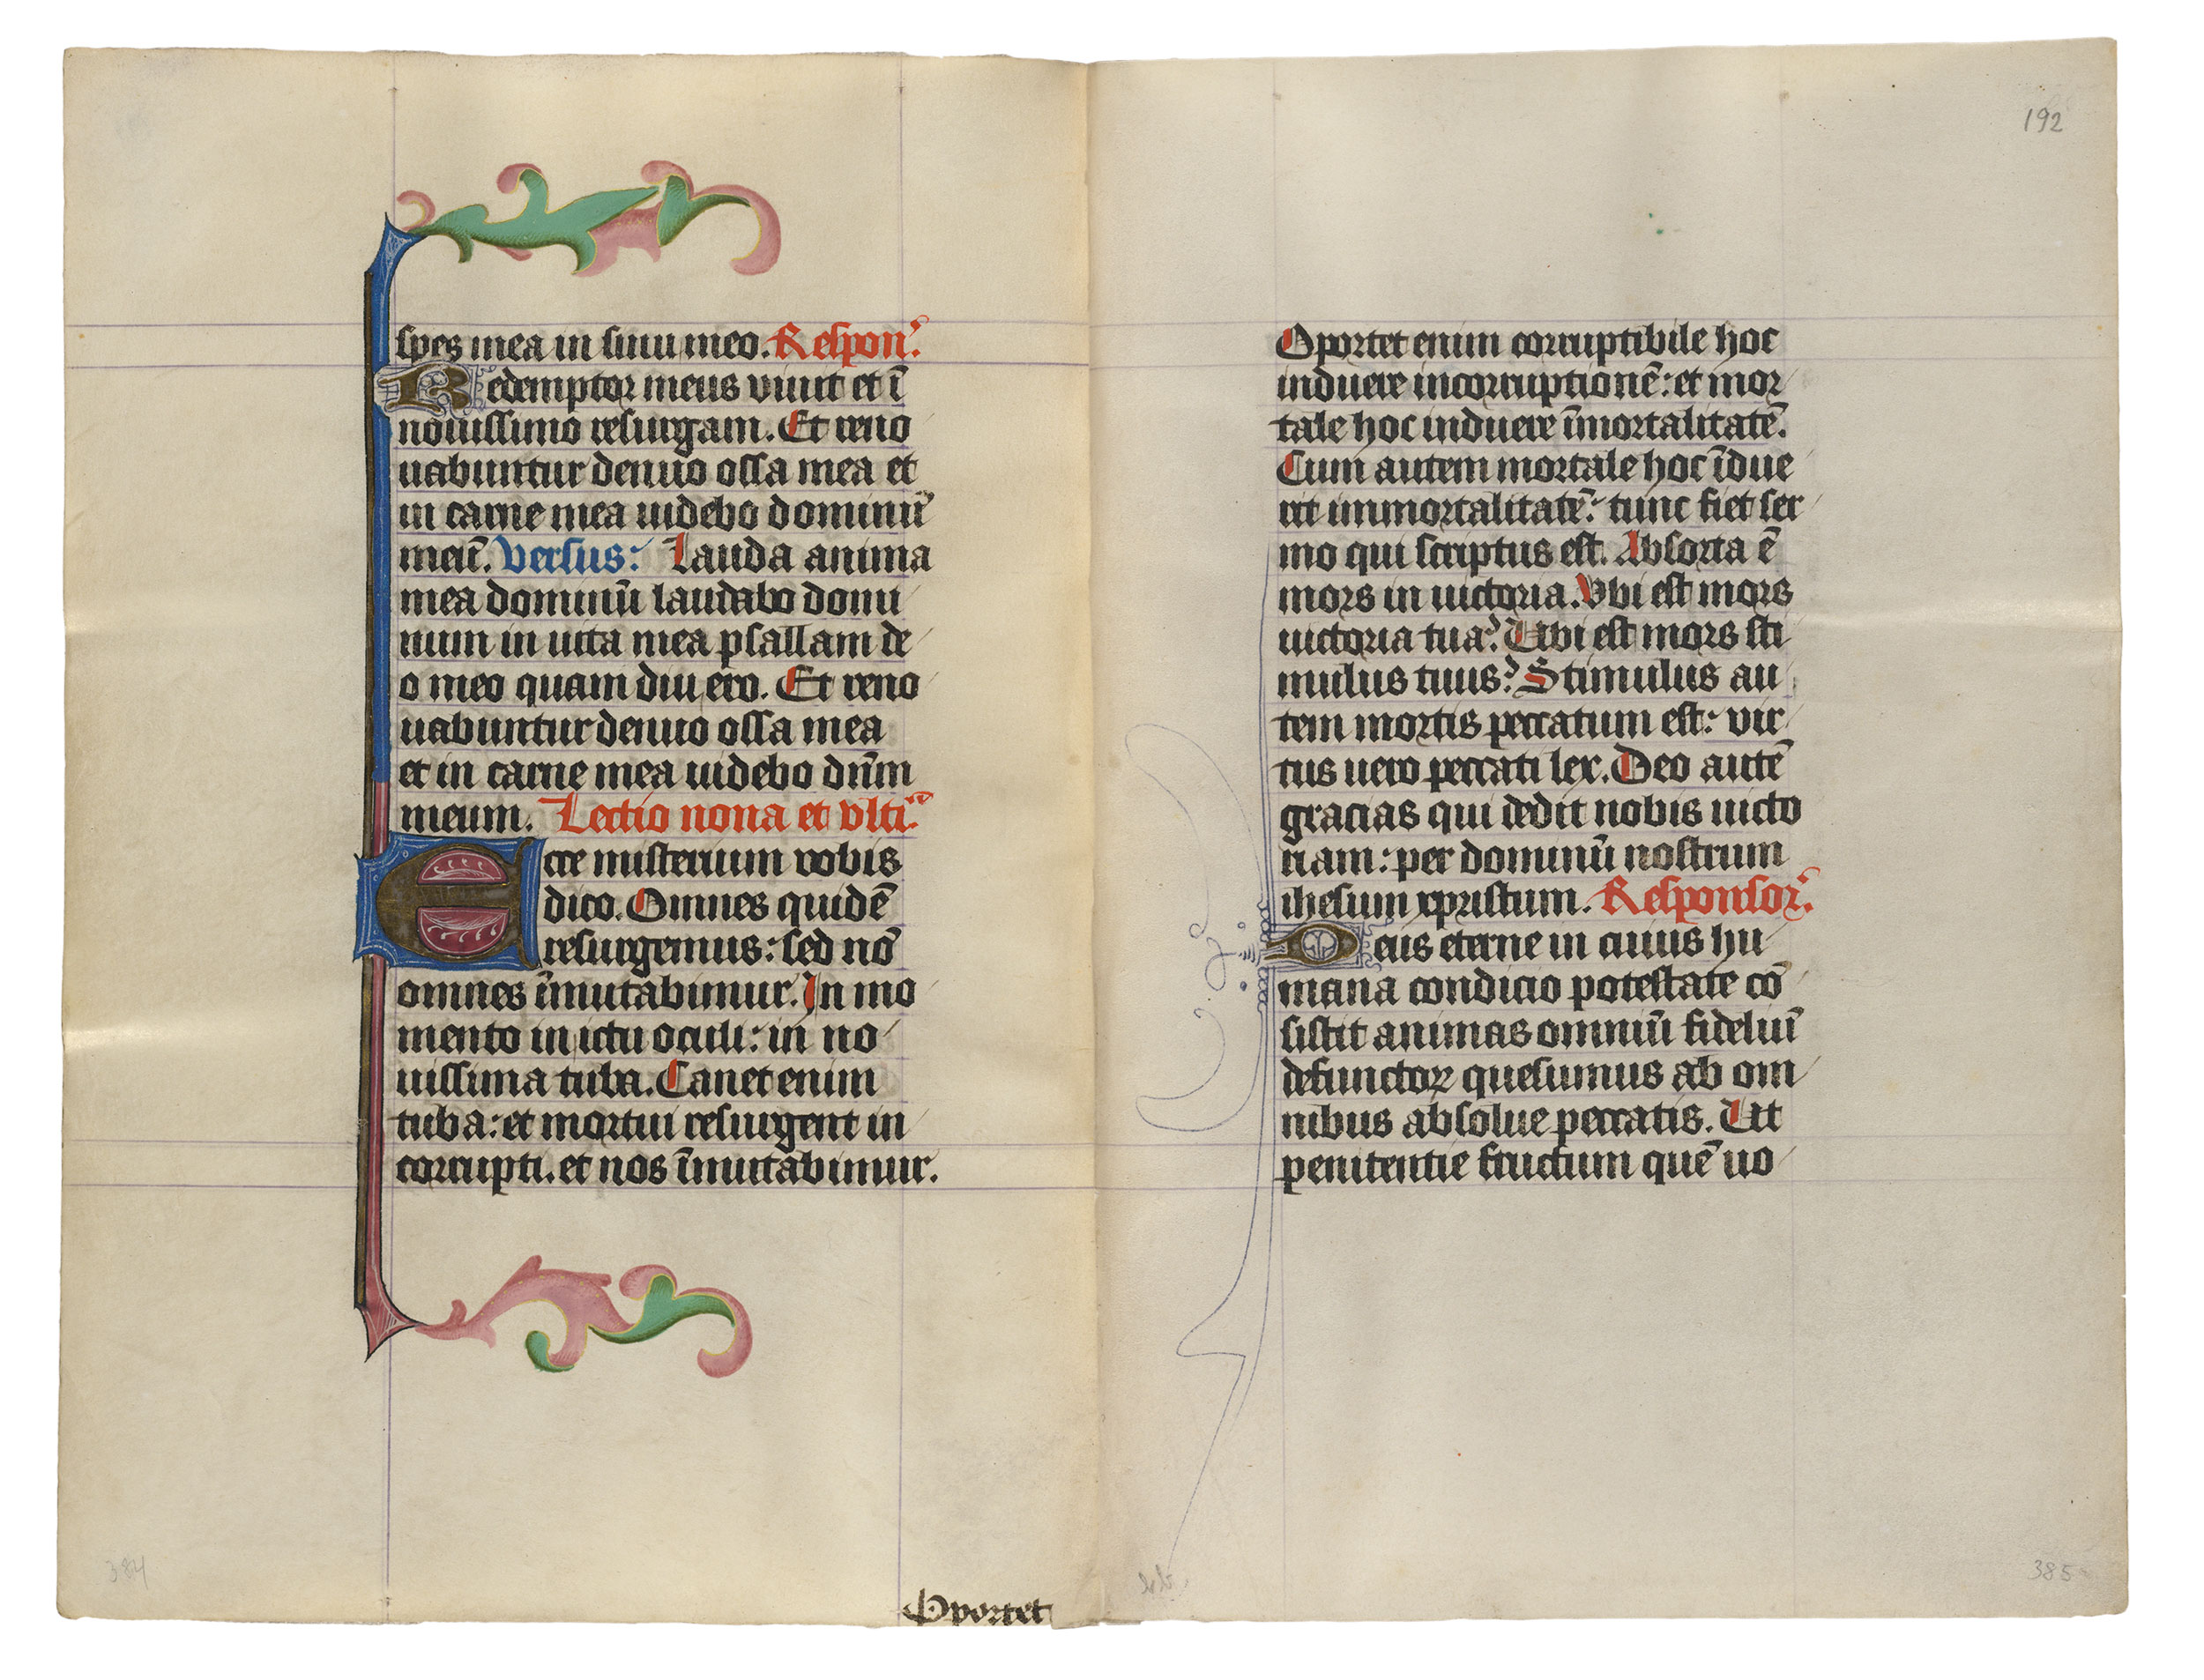 spes mea in sinu meo. Respon᾽.
Redemptor meus viuit et ī
nouissimo resurgam. Et reno
uabuntur denuo ossa mea et
in carne mea uidebo dominū
meū. Versus: Lauda anima
mea dominū laudabo domi
num in uita mea psallam de
o meo quam diu ero. Et reno
uabuntur denuo ossa mea
et in carne mea uidebo dn̄m
meum. Lectio nona et vlti.ᵃ
Ecce misterium vobis
dico. Omnes quidē
resurgemus: sed nō
omnes īmutabimur. In mo
mento in ictu oculi: in no
uissima tuba. Canet enim
tuba: et mortui resurgent in
corrupti. et nos īmutabimur.
Oportet
384
192
Oportet enim corruptibile hoc
induere incorruptionē: et mor
tale hoc induere īmortalitatē.
Cum autem mortale hoc īdue
rit immortalitatē: tunc fiet ser
mo qui scriptus est. Absorta ē
mors in uictoria. Vbi est mors
uictoria tua? Ubi est mors sti
mulus tuus? Stimulus au
tem mortis peccatum est: vir
tus uero peccati lex. Deo autē
gracias qui dedit nobis uicto
riam: per dominū nostrum
ihesum xpristum. Responsor᾽.
Deus eterne in cuius hu
mana condicio potestate cō
sistit animas omniū fideliū
defunctoꝝ quesumus ab om
nibus absolue peccatis. Ut
penitentie fructum quē uo
385